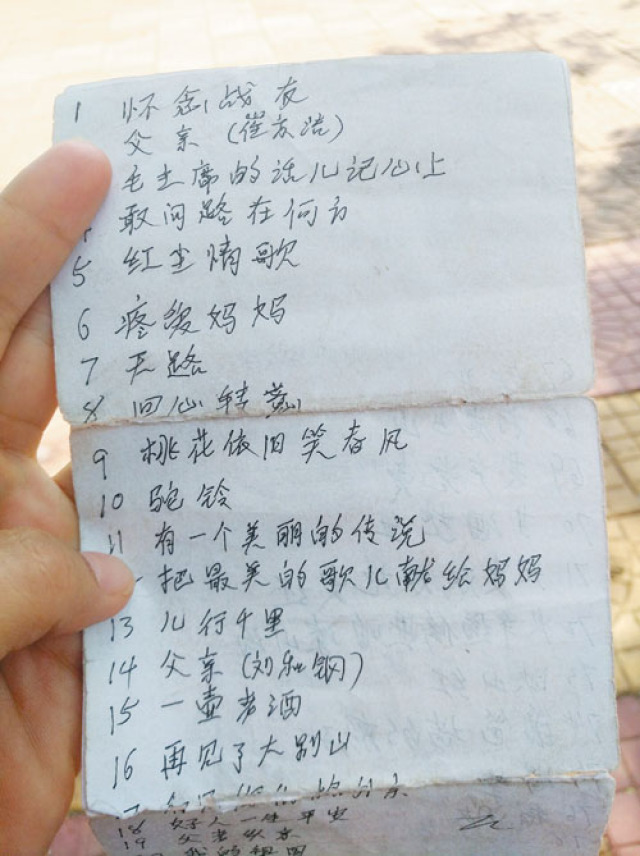 1 怀念战友
父亲 (崔京浩)
毛主席的话儿记心上
敢问路在何方
5 红尘情歌
6 疼爱妈妈
7 天路
8 回心转意
9 桃花依旧笑春风
10 驼铃
11 有一个美丽的传说
把最美的歌儿献给妈妈
13 儿行千里
14 父亲 (刘和钢)
15 一壶老酒
16 再见了大别山
18 好人一生平安
19
我的祖国